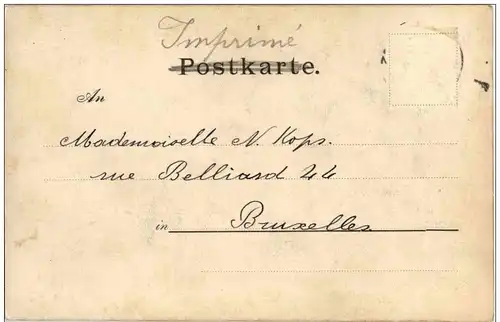 Imprimé
Postkarte.
An
Mademoiselle N. Kops.
rue Belliard 44
in Bruxelles